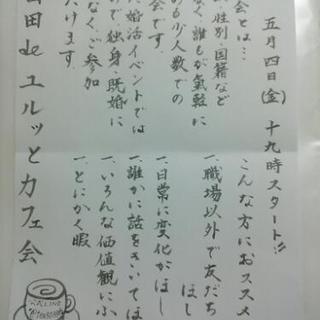 五月四日(金) 十九時スタート!!
会とは…
性別・国籍など
なく、誰もが気軽に
も少人数での
会です。
婚活イベントでは
で独身・既婚に
なく、ご参加
だけます。
こんな方におススメ
一、職場以外で友だち
ほし
一、日常に変化がほし
一、誰かに話をきいてほ
一、いろんな価値観にふ
一、とにかく暇
田 de ユルッとカフェ会